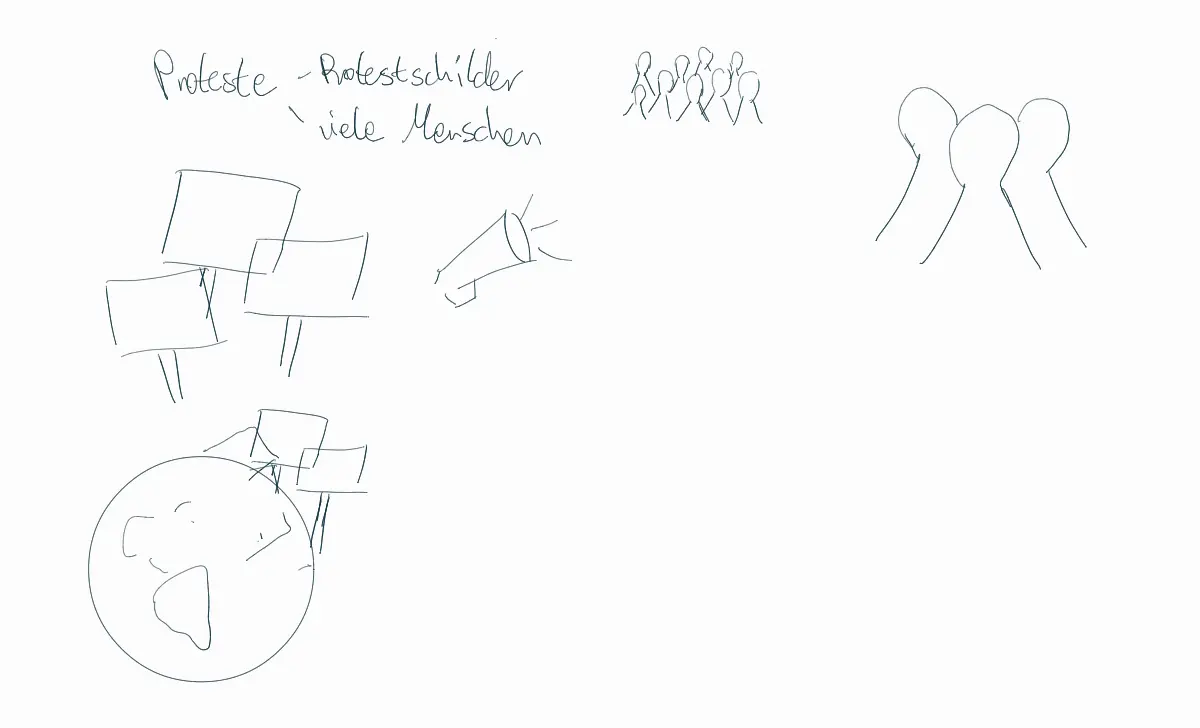 Proteste - Protestschilder
\ viele Menschen